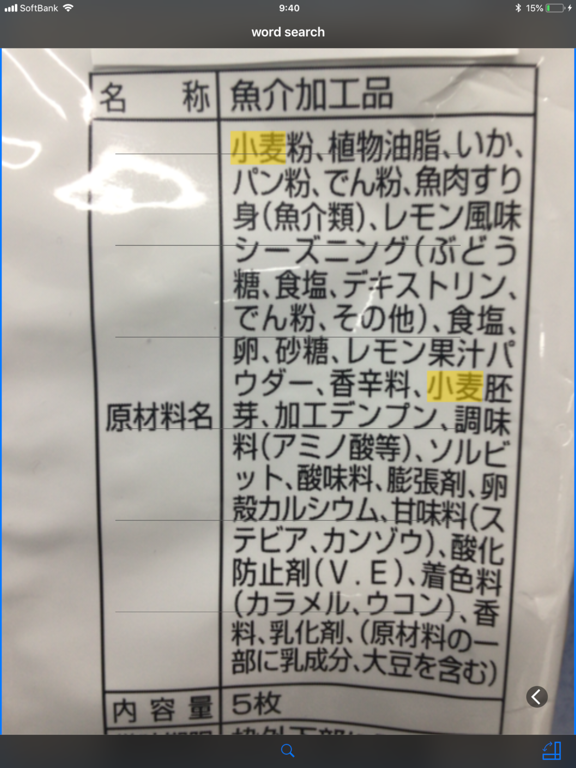 SoftBank 9:40 15%
word search
名 称 魚介加工品
原材料名
小麦粉、植物油脂、いか、
パン粉、でん粉、魚肉すり
身(魚介類)、レモン風味
シーズニング(ぶどう
糖、食塩、デキストリン、
でん粉、その他)、食塩、
卵、砂糖、レモン果汁パ
ウダー、香辛料、小麦胚
芽、加工デンプン、調味
料(アミノ酸等)、ソルビ
ット、酸味料、膨張剤、卵
殻カルシウム、甘味料(ス
テビア、カンゾウ)、酸化
防止剤(V.E)、着色料
(カラメル、ウコン)、香
料、乳化剤、(原材料の一
部に乳成分、大豆を含む)
内容量 5枚